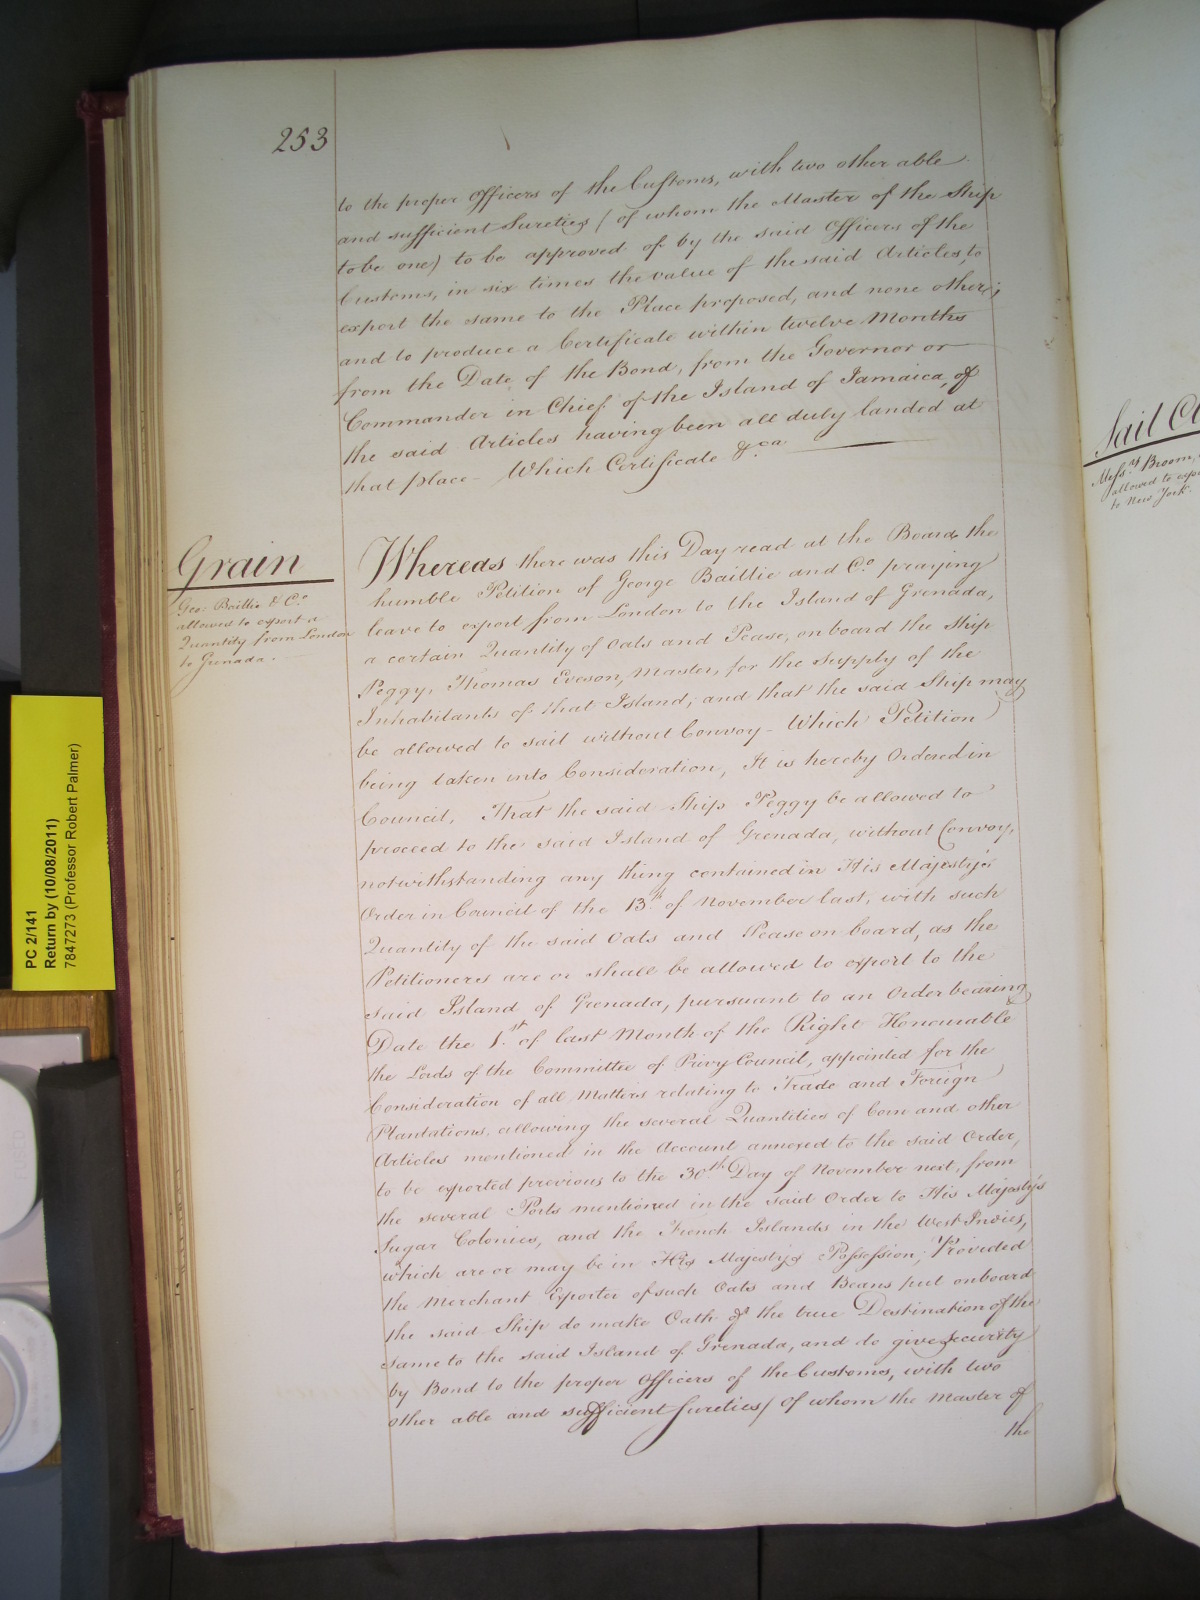 253
to the proper Officers of the Customs, with two other able
and sufficient Sureties (of whom the Master of the Ship
to be one) to be approved of by the said Officers of the
Customs, in six times the value of the said Articles, to
export the same to the Place proposed, and none other;
and to produce a Certificate within twelve Months
from the Date of the Bond, from the Governor or
Commander in Chief of the Island of Jamaica, of
the said Articles having been all duly landed at
that place - Which Certificate &c.a
Grain
Geo: Baillie & Co.
allowed to export a
Quantity from London
to Grenada.
Whereas there was this Day read at the Board the
humble Petition of George Baillie and Co. praying
leave to export from London to the Island of Grenada,
a certain Quantity of Oats and Pease, on board the Ship
Peggy, Thomas Eveson, Master, for the Supply of the
Inhabitants of that Island; and that the said Ship may
be allowed to sail without Convoy - Which Petition
being taken into Consideration, It is hereby Ordered in
Council, That the said Ship Peggy be allowed to
proceed to the said Island of Grenada, without Convoy,
notwithstanding any thing contained in His Majesty's
Order in Council of the 13th of November last, with such
Quantity of the said Oats and Pease on board, as the
Petitioners are or shall be allowed to export to the
said Island of Grenada, pursuant to an Order bearing
Date the 1.st of last Month of the Right Honourable
the Lords of the Committee of Privy Council, appointed for the
Consideration of all Matters relating to Trade and Foreign
Plantations, allowing the several Quantities of Corn and other
Articles mentioned in the Account annexed to the said Order,
to be exported previous to the 30th Day of November next, from
the several Ports mentioned in the said Order to His Majesty's
Sugar Colonies, and the French Islands in the West Indies,
which are or may be in His Majesty's Possession; Provided
the Merchant Exporter of such Oats and Beans put onboard
the said Ship do make Oath of the true Destination of the
same to the said Island of Grenada, and do give Security
by Bond to the proper Officers of the Customs, with two
other able and sufficient Sureties (of whom the Master of
the
Sail Cl
Mess.rs Broom,
allowed to expo
to New York.
PC 2/141
Return by (10/08/2011)
7847273 (Professor Robert Palmer)